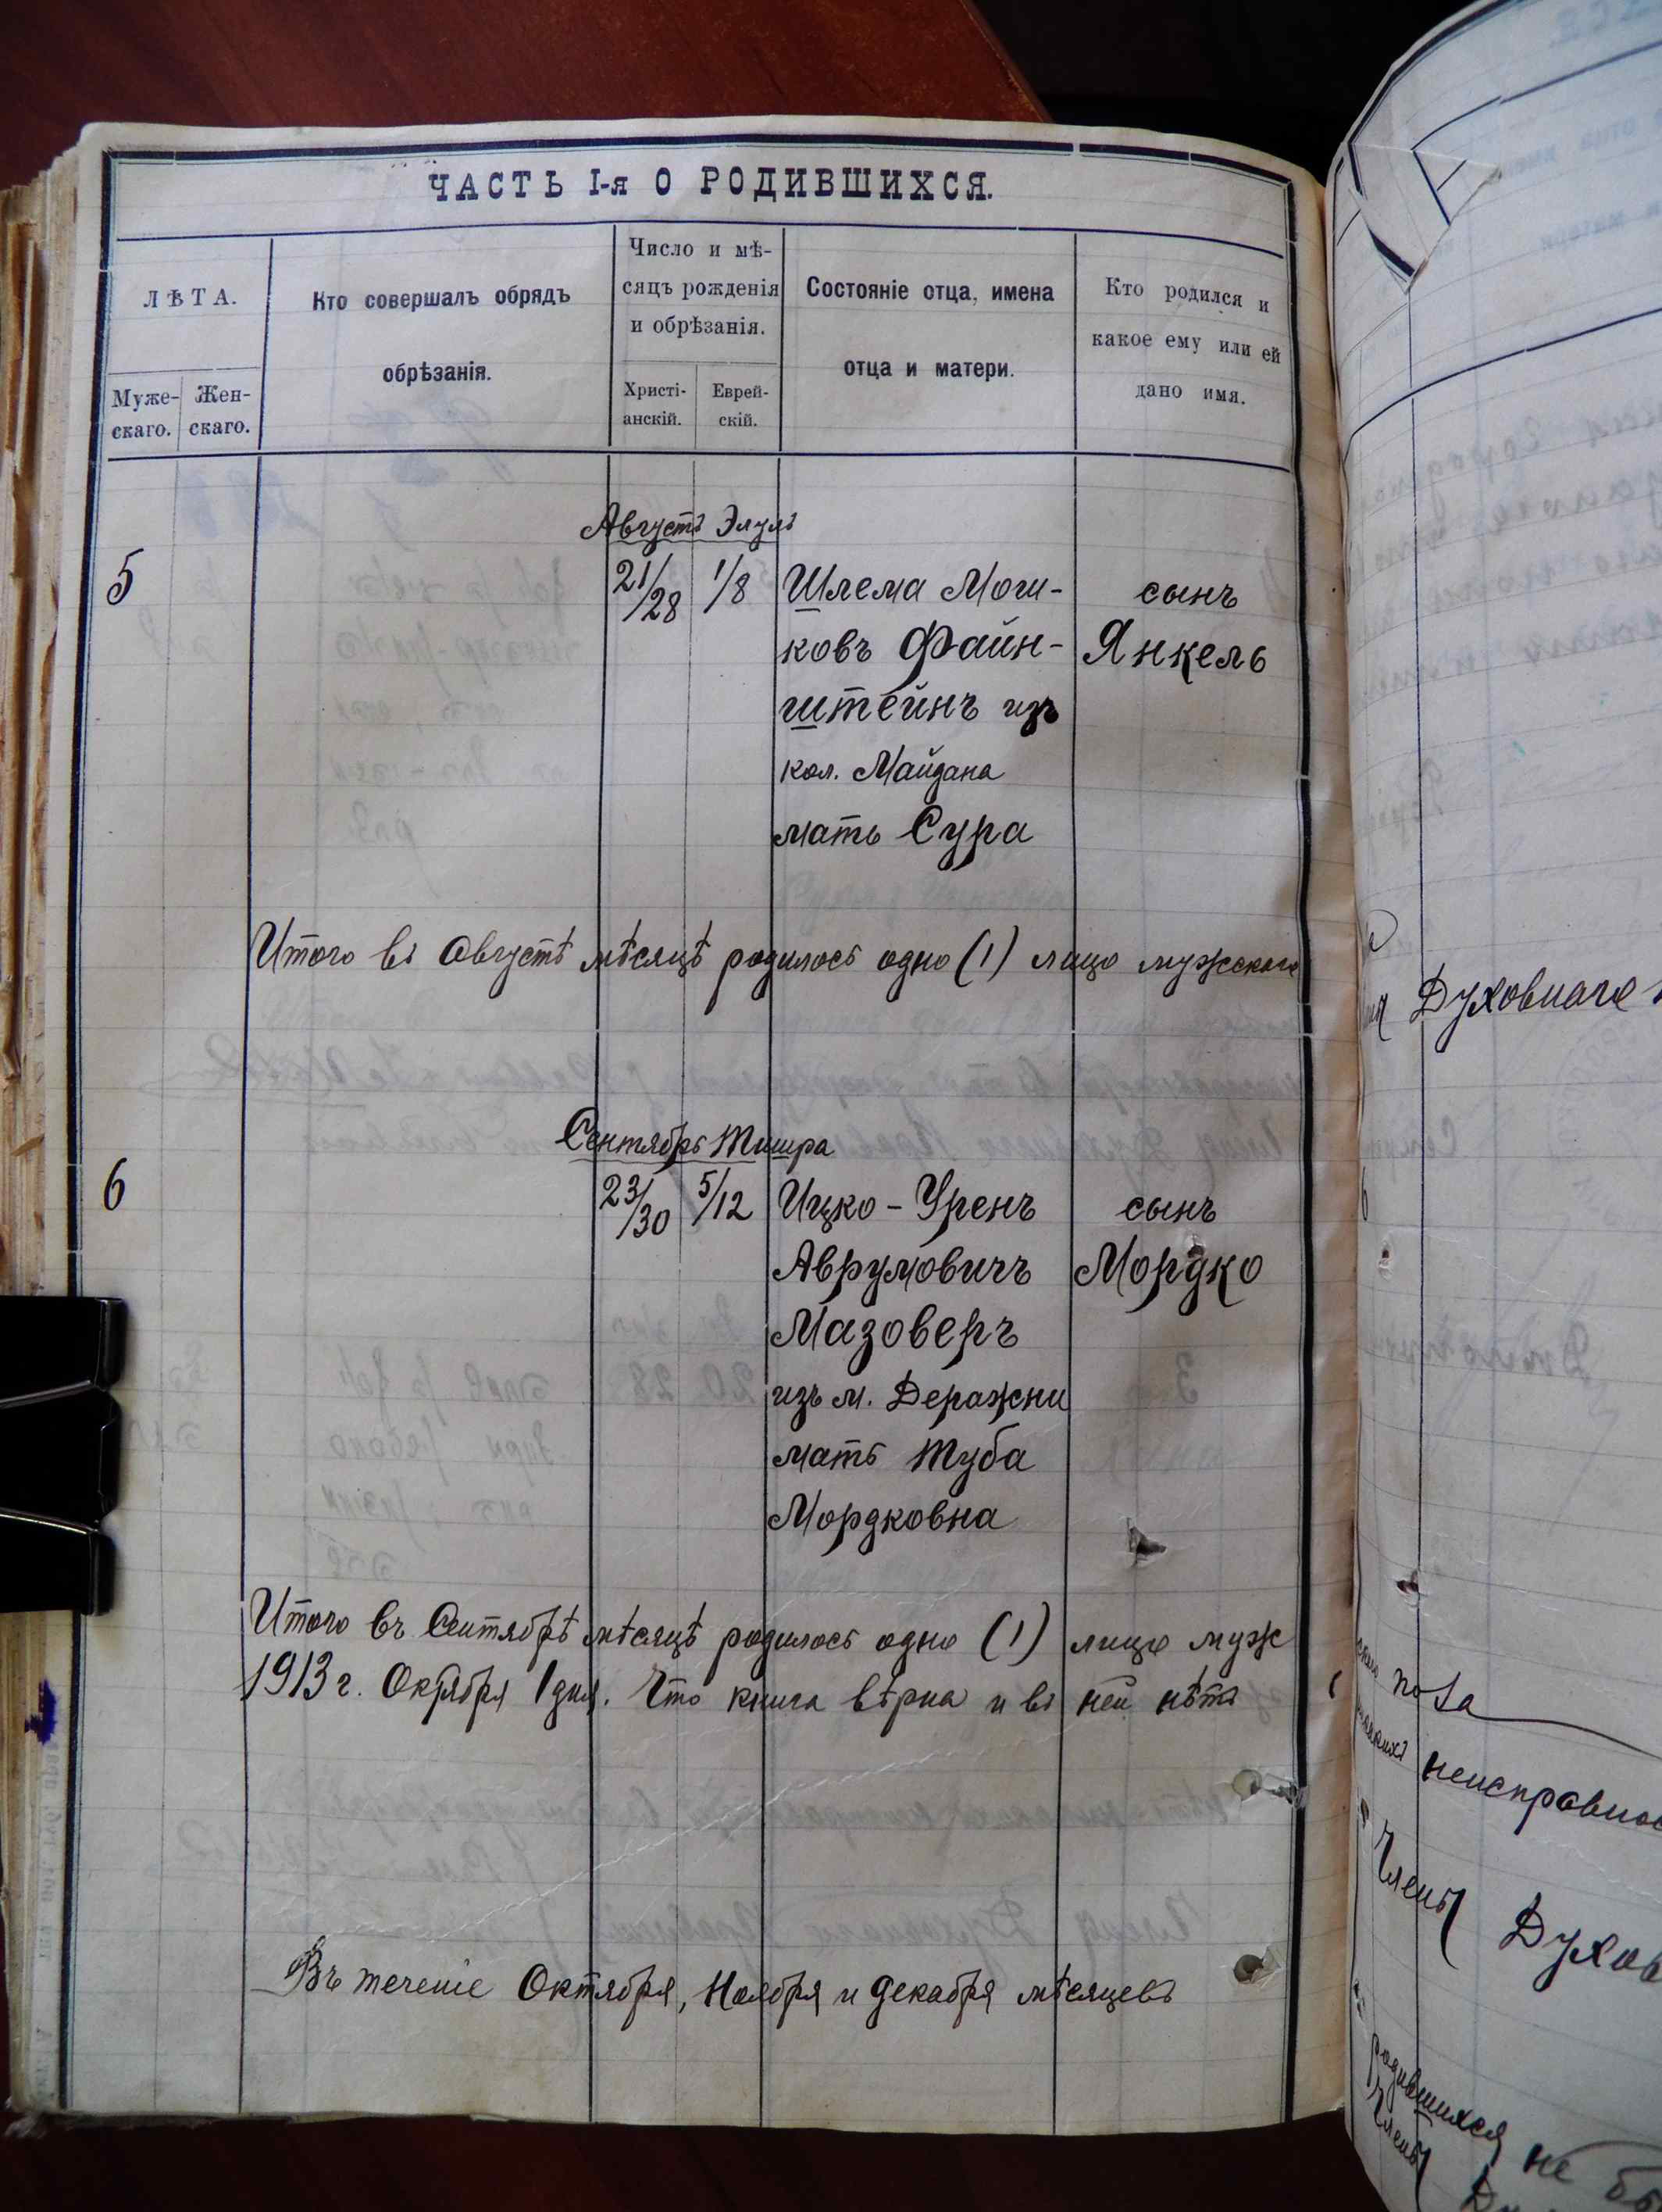 ЧАСТЬ I-я О РОДИВШИХСЯ.
ЛѢТА.
Муже-
скаго.
Жен-
скаго.
Кто совершалъ обрядъ
обрѣзанія.
Число и мѣ-
сяцъ рожденія
и обрѣзанія.
Христі-
анскій.
Еврей-
скій.
Состояніе отца, имена
отца и матери.
Кто родился и
какое ему или ей
дано имя.
Августъ Элулъ
5 21/28 1/8 Шлема Моги- сынъ
ковъ Файн- Янкель
штейнъ изъ
кол. Майдана
мать Сура
Итого въ Августѣ мѣсяцѣ родилось одно (1) лицо мужескаго
Сентябрь Тишра
6 23/30 5/12 Ицко-Уренъ сынъ
Аврумовичъ Мордко
Мазоверъ
изъ м. Деражни
мать Туба
Мордковна
Итого въ Сентябрѣ мѣсяцѣ родилось одно (1) лицо муж
1913 г. Октября 1 дня. Что книга вѣрна и въ ней нѣтъ
Въ теченіе Октября, Ноября и Декабря мѣсяцевъ
Духовнаго
пола
неисправнос
Члены
Духов
родившихся не бы
Члены